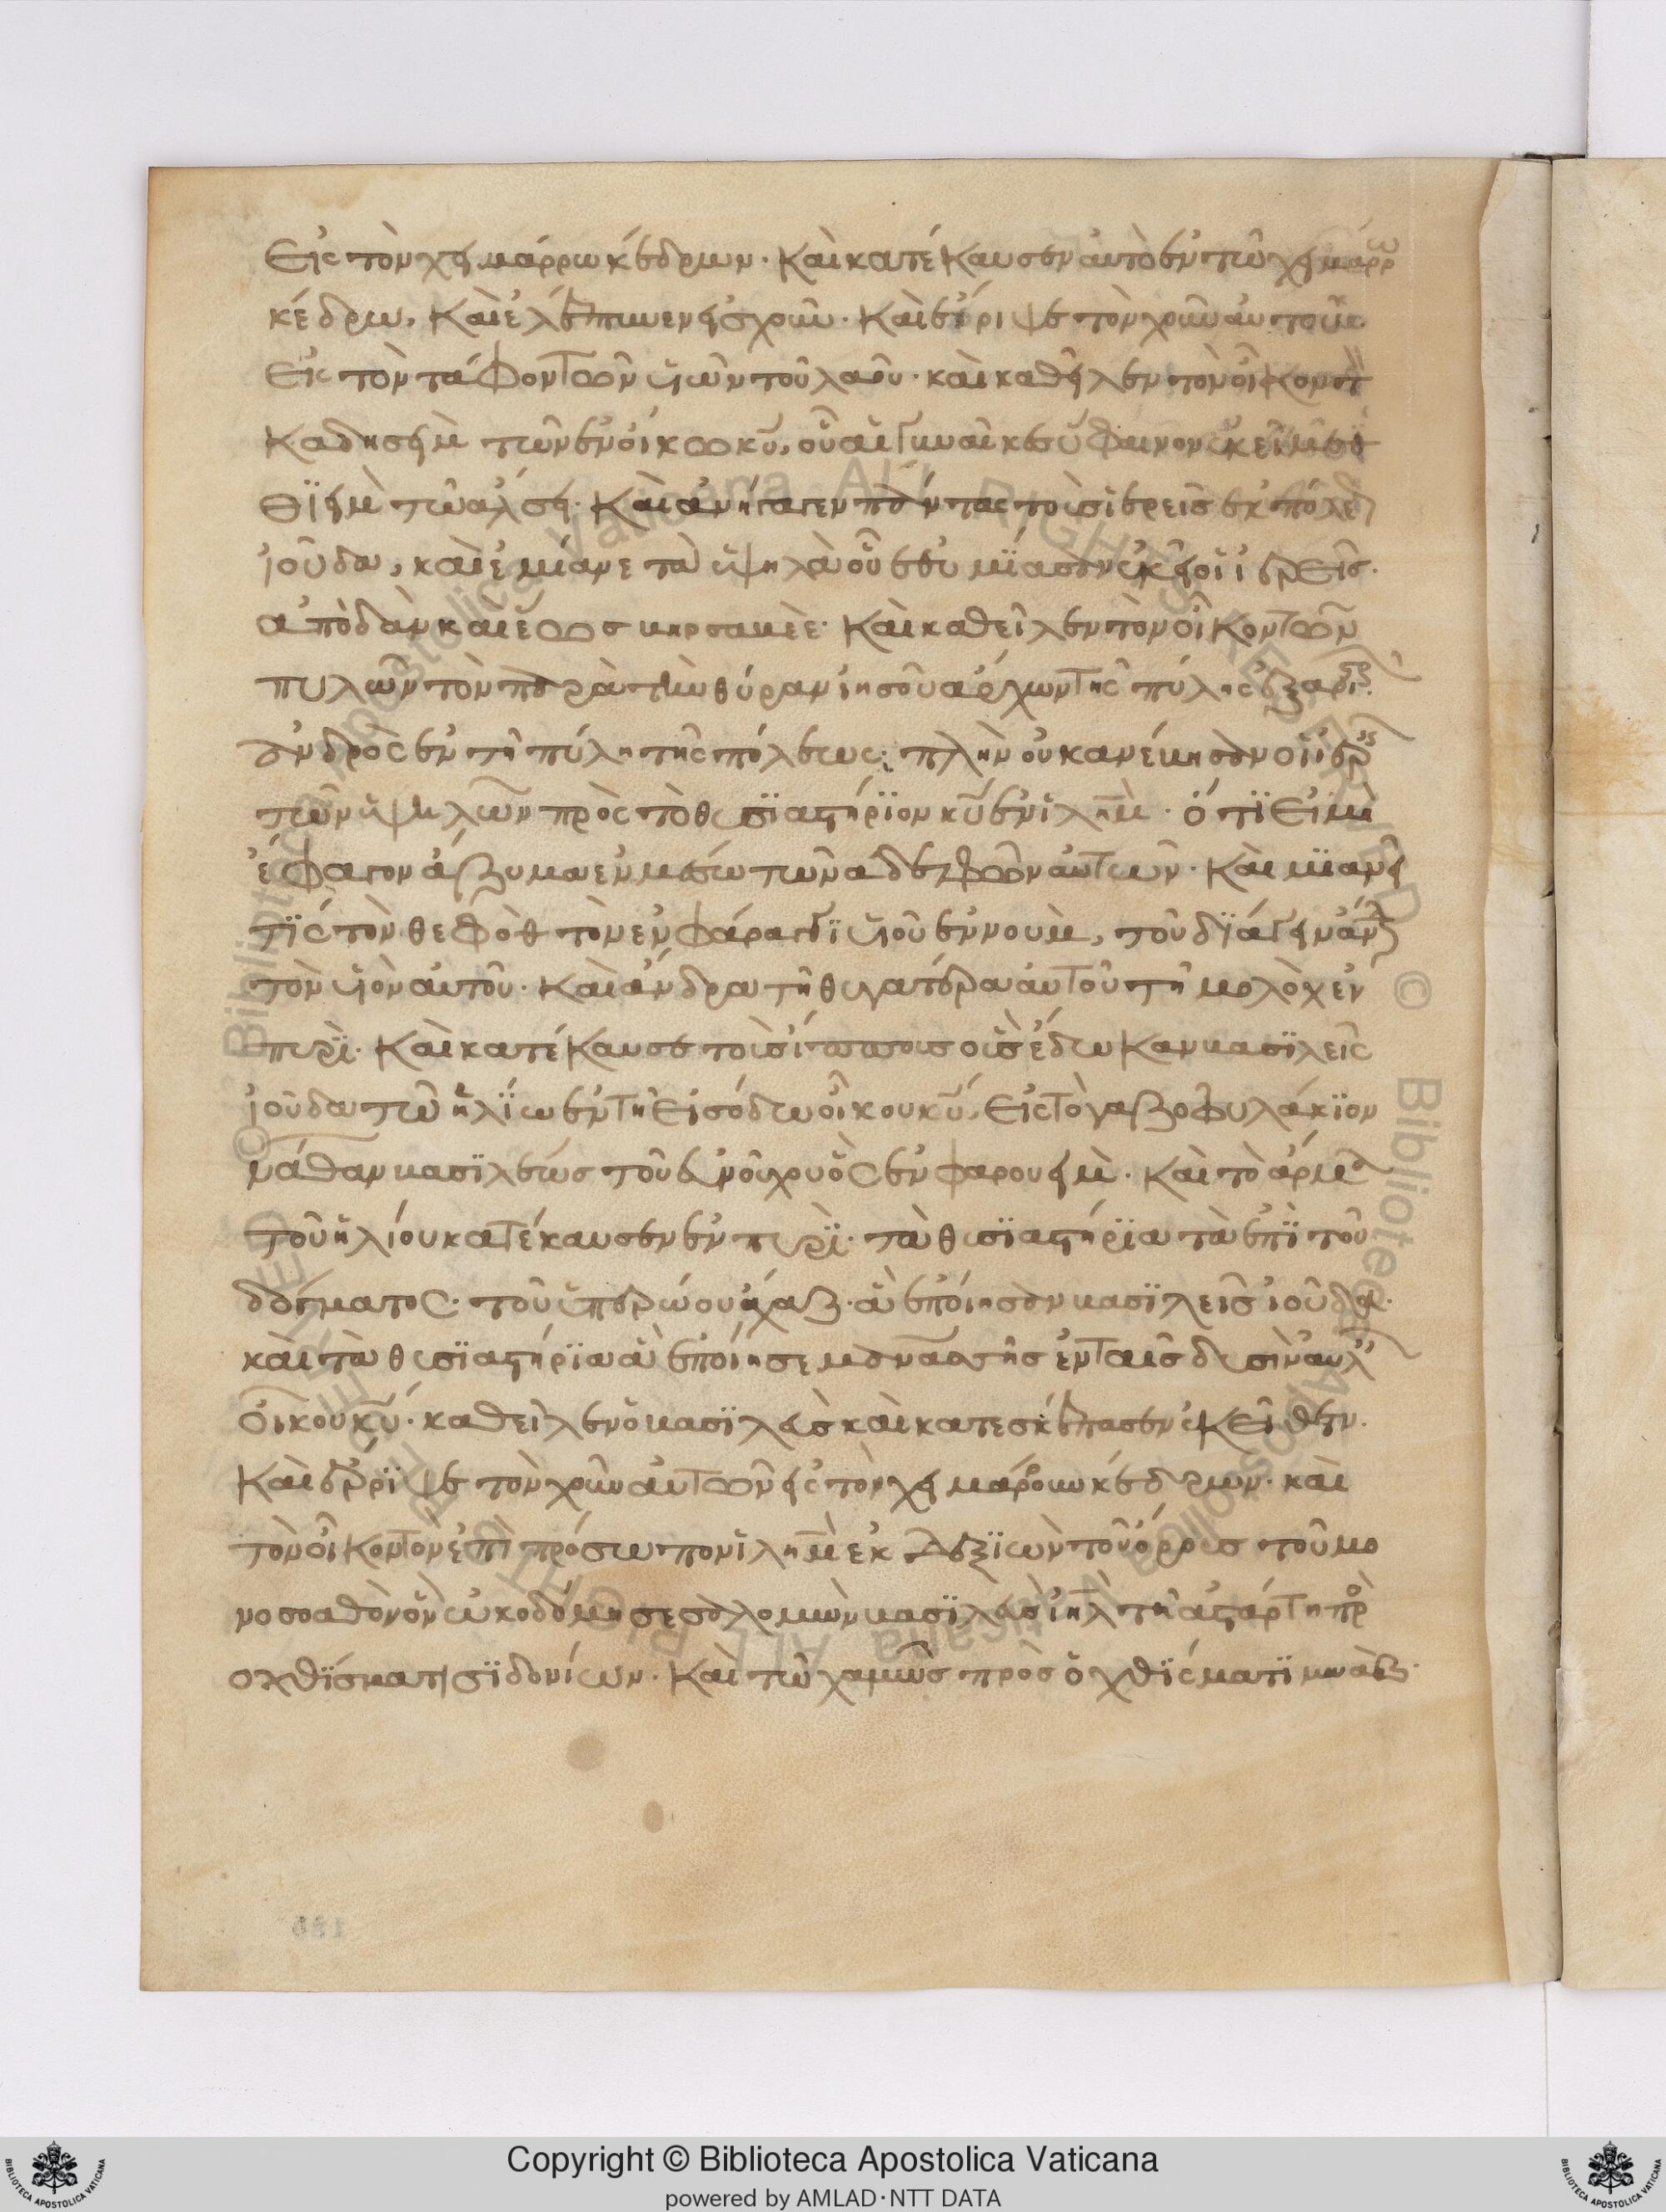 Εἰς τὸν χειμάρρω κέδρων. Καὶ κατέκαυσεν αὐτὸ ἐν τῷ χειμάρρω
κέδρω, Καὶ ἐλέπτυνεν εἰς χοῦν. Καὶ ἔρριψε τὸν χοῦν αὐτοῦ
Εἰς τὸν τάφον τῶν υἱῶν τοῦ λαοῦ. καὶ καθεῖλεν τὸν οἶκον τ
Καδησεὶμ τῶν ἐν οἴκω κυ, οὗ αἱ γυναῖκες ὕφαινον ἐκεῖ
θϊεὶμ τῷ ἄλσει. Καὶ ἀνήγαγεν πάντας τοὺς ἱερεῖς ἐκ πόλε
ἰούδα, καὶ ἐμίανε τὰ ὑψηλὰ οὗ ἐθυμίασαν ἐκεῖ οἱ ἱερεῖς.
ἀπὸ δὰν καὶ ἕως βηρσαβεέ. Καὶ καθεῖλεν τὸν οἶκον τῶν
πυλῶν τὸν παρὰ τὴν θύραν ἰησοῦ ἄρχων τῆς πύλης ἐξ ἀρις
ἀνδρὸς ἐν τῇ πύλη τῆς πόλεως· πλὴν οὐκ ἀνέβησαν οἱ ἱερς
τῶν ὑψηλῶν πρὸς τὸ θυσϊαστήρϊον κυ ἐν ιλημ. ὅτϊ Εἰ μὴ
ἔφαγον ἄζυμα ἐν μέσω τῶν ἀδελφῶν αὐτῶν. Καὶ μϊανεῖ
τϊς τὸν θεφὸθ τὸν ἐν φάραγγϊ υἱοῦ ἐννοὺμ, τοῦ δϊάγειν ἄνδ
τὸν υἱὸν αὐτοῦ. Καὶ ἄνδρα τῇ θυγατέρα αὐτοῦ τῇ μολὸχ ἐν
πυρϊ. Καὶ κατέκαυσε τοὺς ἵππους οὓς ἔδωκαν βασϊλεῖς
ἰούδα τῷ ἡλίω ἐν τῇ Εἰσόδω οἴκου κυ, Εἰς τὸ γαζοφυλάκϊον
νάθαν βασϊλέως τοῦ εὐνούχου ὃς ἐν φαρουεὶμ. Καὶ τὸ ἅρμα
τοῦ ἡλίου κατέκαυσεν ἐν πυρϊ. τὰ θυσϊαστήρϊα τὰ ἐπὶ τοῦ
δόγματος. τοῦ ὑπερώου ἄχαζ. ἃ ἐποίησαν βασϊλεῖς ἰούδα.
καὶ τὰ θυσϊαστήρϊα ἃ ἐποίησε μανασσῆς ἐν ταῖς δυσὶν αὐλ
Οἴκου κυ. καθεῖλεν ὁ βασϊλεὺς καὶ κατεσκέπασεν ἐκεῖθεν.
Καὶ ἔρρϊψε τὸν χοῦν αὐτῶν εἰς τὸν χειμάρρω κέδρων. καὶ
τὸν οἶκον τὸν ἐπὶ πρόσωπον ιλημ ἐκ δεξϊῶν τοῦ ὄρους τοῦ μο
νοσοαθὸν ὃν ὠκοδόμησε σαλομὼν βασϊλεὺς ιηλ τῇ ἀστάρτη πρ
Οχθϊσματι σϊδονίων. Καὶ τῷ χαμὼς πρὸς ὀχθϊσματϊ μωὰβ.